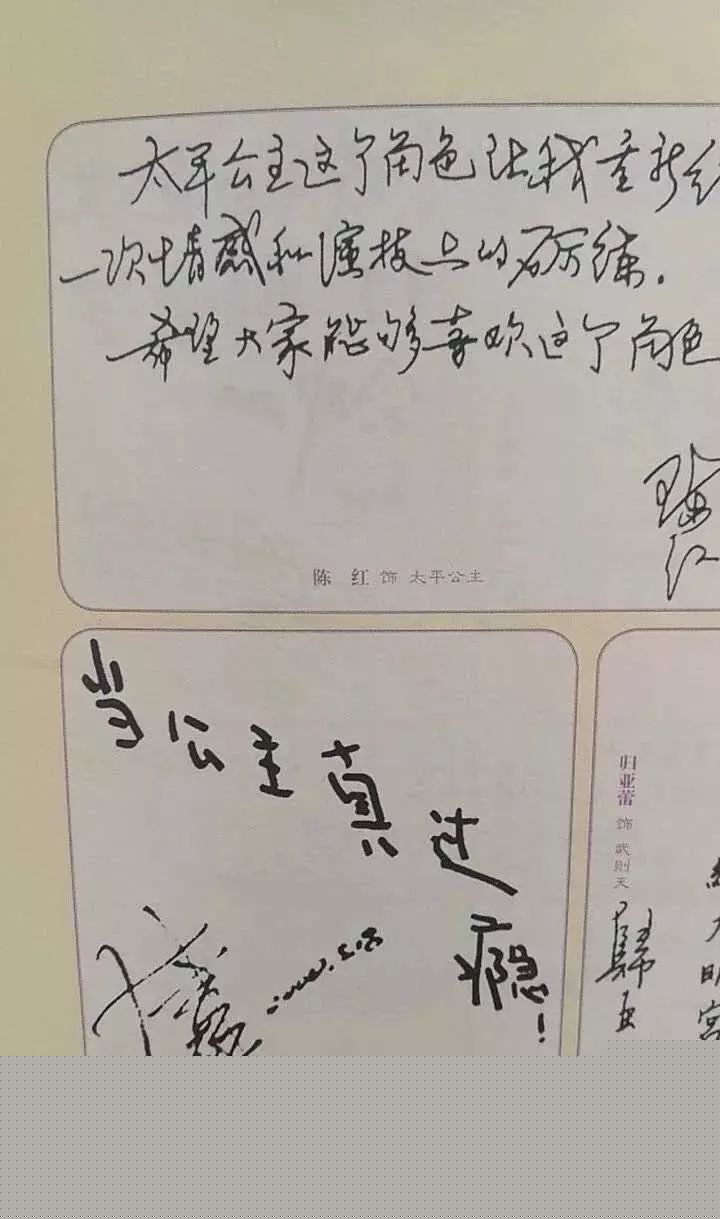 太平公主这个角色让我重新经
一次情感和演技上的砺练.
希望大家能够喜欢这个角色
陈红
陈 红 饰 太平公主
当公主真过瘾!
归亚蕾 饰 武则天
归亚
大
明
宫